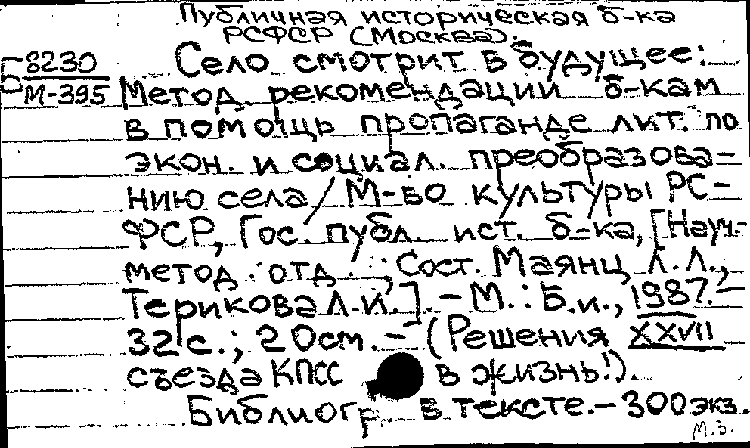 Публичная историческая б-ка
РСФСР (Москва).
Б 8230
М-395
Село смотрит в будущее:
Метод. рекомендации б-кам
в помощь пропаганде лит. по
экон. и социал. преобразова-
нию села / М-во культуры РС-
ФСР, Гос. публ. ист. б-ка, [Науч.-
метод. отд.; Сост. Маянц Л.Л.,
Терикова Л.И.]. - М.: Б.и., 1987. -
32 с.; 20 см. - (Решения XXVII
съезда КПСС в жизнь!).
Библиогр. в тексте. - 300 экз.
М.З.